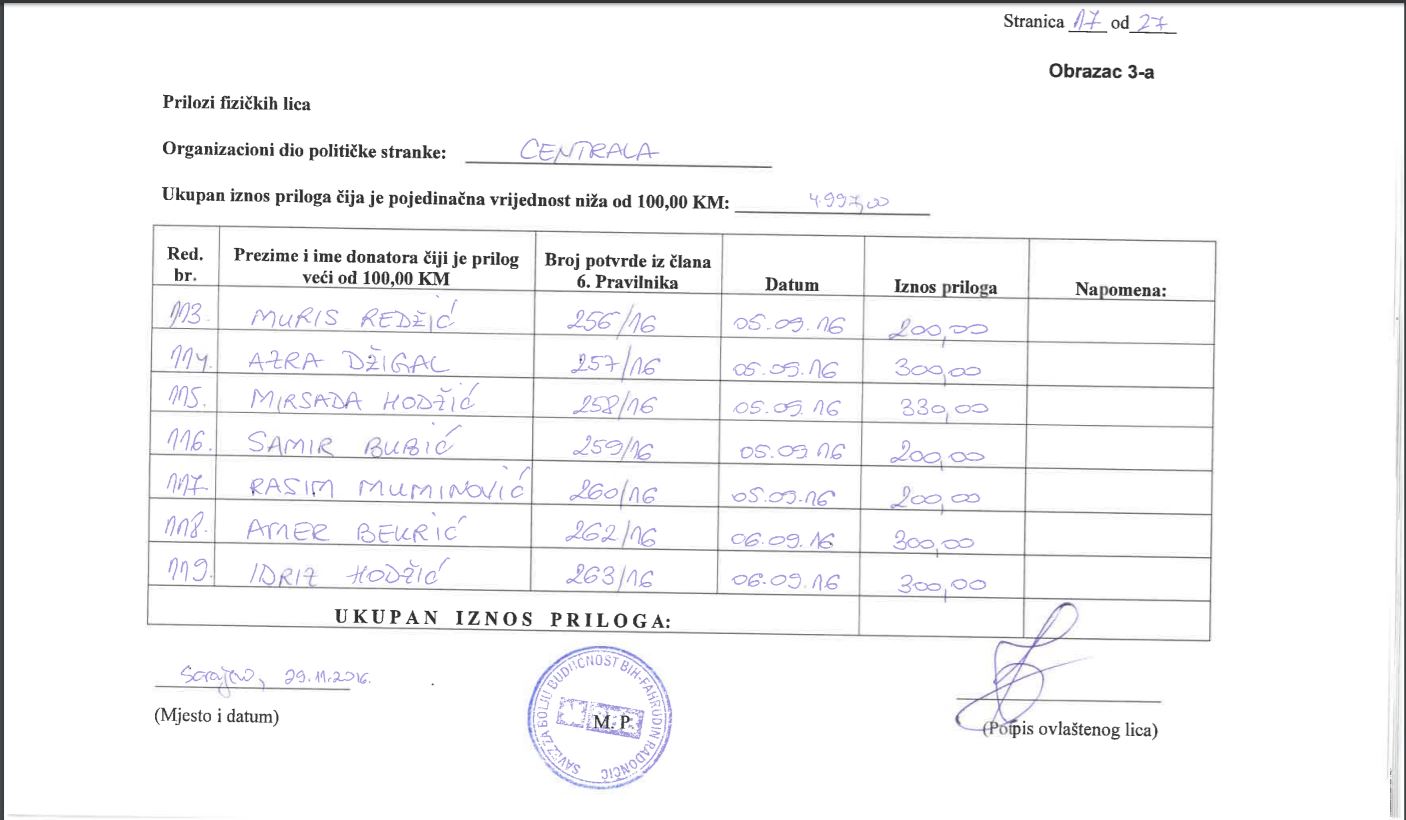 Stranica 17 od 27
Obrazac 3-a
Prilozi fizičkih lica
Organizacioni dio političke stranke: CENTRALA
Ukupan iznos priloga čija je pojedinačna vrijednost niža od 100,00 KM: 4.997,00
Red. br. Prezime i ime donatora čiji je prilog veći od 100,00 KM Broj potvrde iz člana 6. Pravilnika Datum Iznos priloga Napomena:
113. MURIS REDŽIĆ 256/16 05.09.16 200,00
114. AZRA DŽIGAL 257/16 05.09.16 300,00
115. MIRSADA HODŽIĆ 258/16 05.09.16 330,00
116. SAMIR BUBIĆ 259/16 05.09.16 200,00
117. RASIM MUMINOVIĆ 260/16 05.09.16 200,00
118. AMER BEKRIĆ 262/16 06.09.16 300,00
119. IDRIZ HODŽIĆ 263/16 06.09.16 300,00
UKUPAN IZNOS PRILOGA:
Sarajevo, 29.11.2016.
(Mjesto i datum)
SAVEZ ZA BOLJU BUDUĆNOST BIH-FAHRUDIN RADONČIĆ
M. P.
(Potpis ovlaštenog lica)